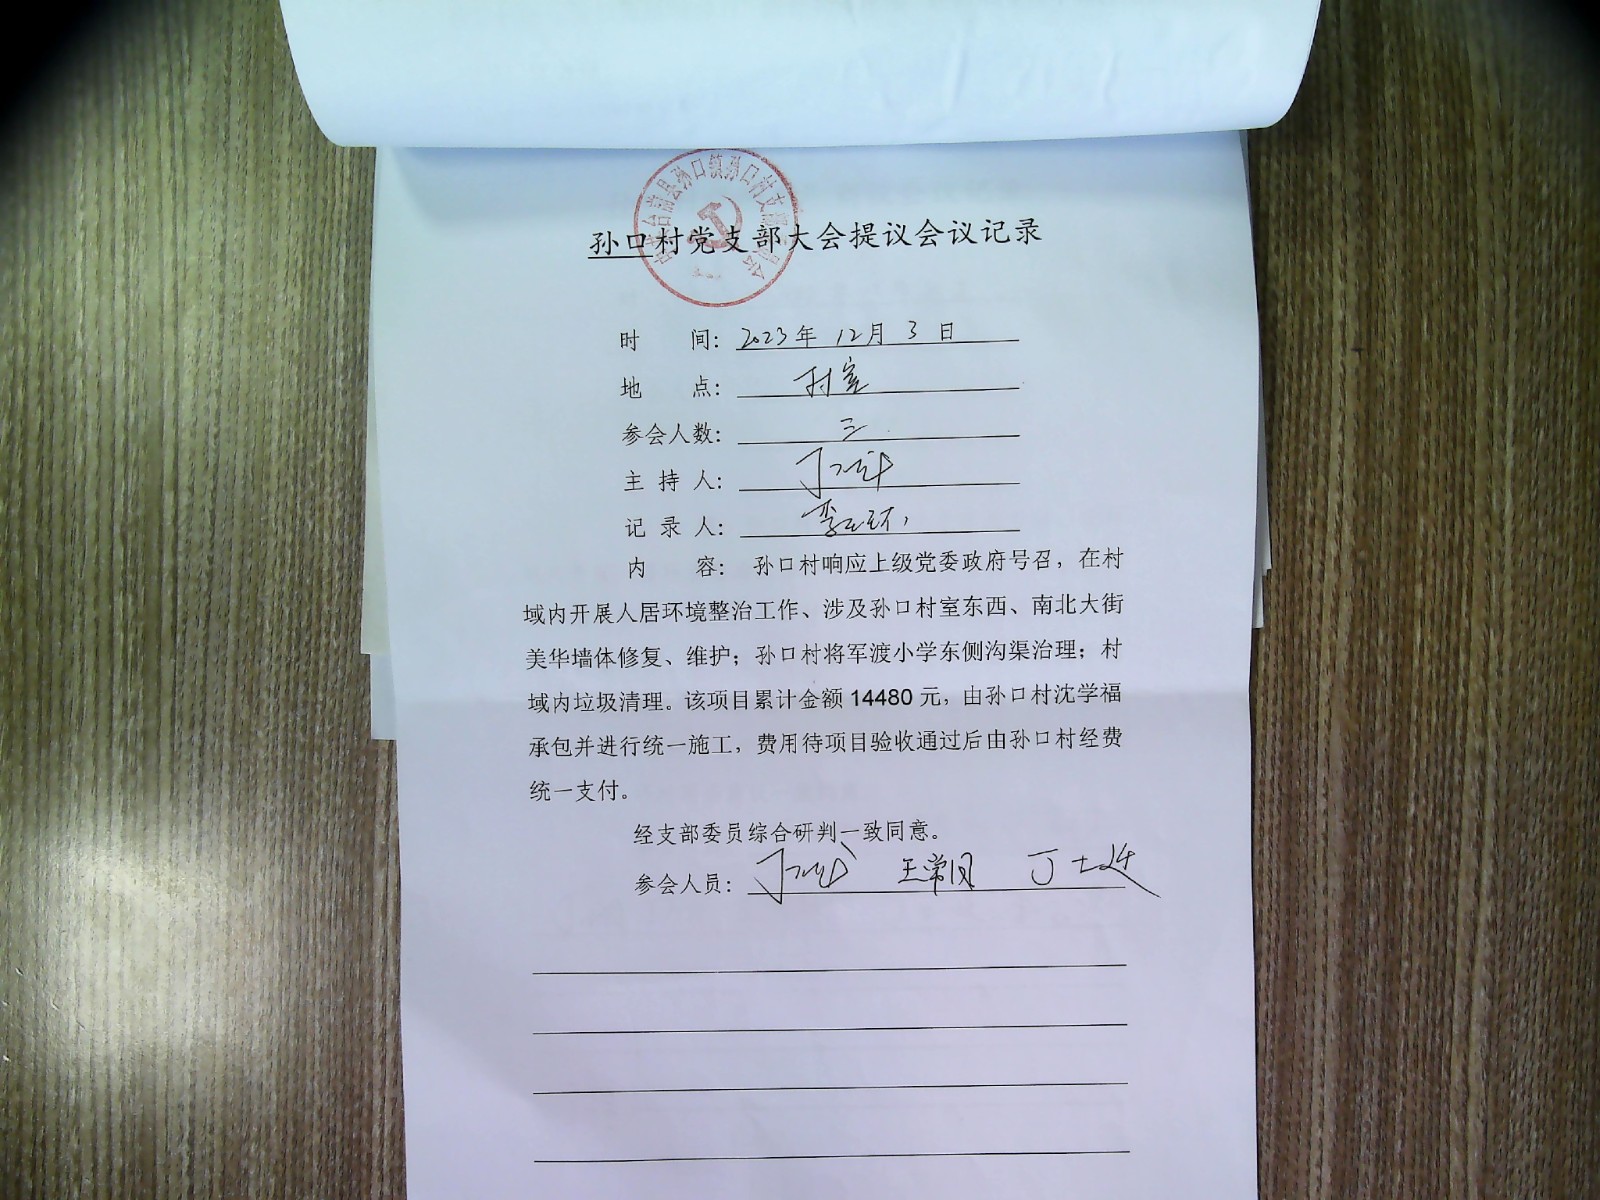 孙口村党支部大会提议会议记录
时 间：2023年 12月 3日
地 点：村室
参会人数：三
主 持 人：
记 录 人：
内 容： 孙口村响应上级党委政府号召，在村
域内开展人居环境整治工作、涉及孙口村室东西、南北大街
美华墙体修复、维护；孙口村将军渡小学东侧沟渠治理；村
域内垃圾清理。该项目累计金额 14480 元，由孙口村沈学福
承包并进行统一施工，费用待项目验收通过后由孙口村经费
统一支付。
经支部委员综合研判一致同意。
参会人员：